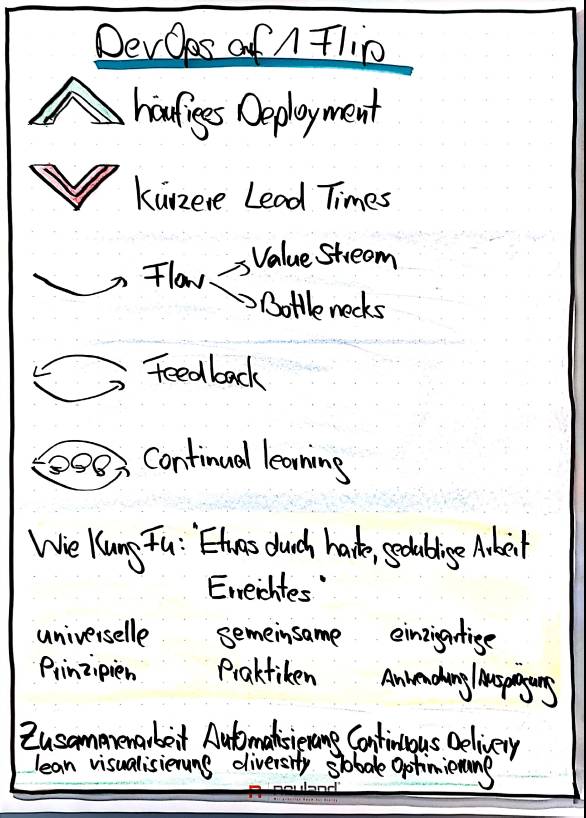 DevOps auf 1 Flip
häufiges Deployment
kürzere Lead Times
Flow
Value Stream
Bottlenecks
Feedback
Continual learning
Wie Kung Fu: "Etwas durch harte, geduldige Arbeit
Erreichtes"
universelle gemeinsame einzigartige
Prinzipien Praktiken Anwendung/Ausprägung
Zusammenarbeit Automatisierung Continuous Delivery
lean visualisierung diversity globale Optimierung
neuland